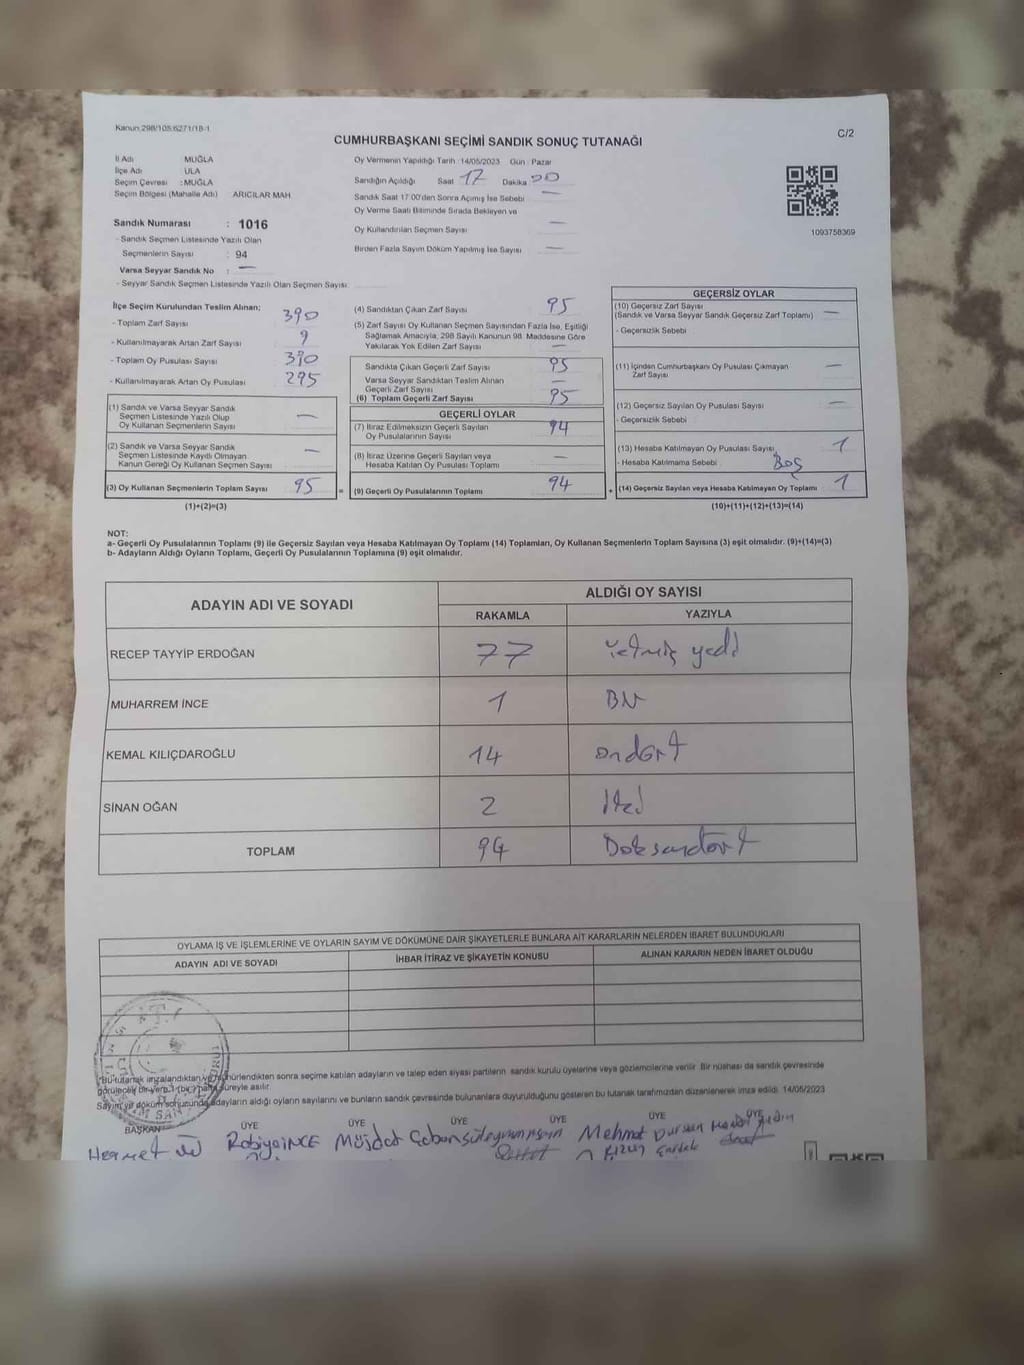 Kanun:298/105;6271/18-1
C/2
CUMHURBAŞKANI SEÇİMİ SANDIK SONUÇ TUTANAĞI
İl Adı MUĞLA
İlçe Adı ULA
Seçim Çevresi : MUĞLA
Seçim Bölgesi (Mahalle Adı) ARICILAR MAH
Sandık Numarası : 1016
- Sandık Seçmen Listesinde Yazılı Olan
Seçmenlerin Sayısı : 94
Varsa Seyyar Sandık No : —
- Seyyar Sandık Seçmen Listesinde Yazılı Olan Seçmen Sayısı:
Oy Vermenin Yapıldığı Tarih :14/05/2023 Gün : Pazar
Sandığın Açıldığı Saat 17 Dakika
Sandık Saat 17:00'den Sonra Açımış İse Sebebi —
Oy Verme Saati Bitiminde Sırada Bekleyen ve
Oy Kullandırılan Seçmen Sayısı —
Birden Fazla Sayım Döküm Yapılmış İse Sayısı —
1093758369
İlçe Seçim Kurulundan Teslim Alınan;
- Toplam Zarf Sayısı 390
- Kullanılmayarak Artan Zarf Sayısı 9
- Toplam Oy Pusulası Sayısı 390
- Kullanılmayarak Artan Oy Pusulası 295
(1) Sandık ve Varsa Seyyar Sandık
Seçmen Listesinde Yazılı Olup
Oy Kullanan Seçmenlerin Sayısı —
(2) Sandık ve Varsa Seyyar Sandık
Seçmen Listesinde Kayıtlı Olmayan
Kanun Gereği Oy Kullanan Seçmen Sayısı —
(3) Oy Kullanan Seçmenlerin Toplam Sayısı 95 =
(1)+(2)=(3)
(4) Sandıktan Çıkan Zarf Sayısı 95
(5) Zarf Sayısı Oy Kullanan Seçmen Sayısından Fazla İse, Eşitliği
Sağlamak Amacıyla, 298 Sayılı Kanunun 98. Maddesine Göre
Yakılarak Yok Edilen Zarf Sayısı —
Sandıkta Çıkan Geçerli Zarf Sayısı 95
Varsa Seyyar Sandıktan Teslim Alınan
Geçerli Zarf Sayısı —
(6) Toplam Geçerli Zarf Sayısı 95
GEÇERLİ OYLAR
(7) İtiraz Edilmeksizin Geçerli Sayılan
Oy Pusulalarının Sayısı 94
(8) İtiraz Üzerine Geçerli Sayılan veya
Hesaba Katılan Oy Pusulası Toplamı —
(9) Geçerli Oy Pusulalarının Toplamı 94 +
GEÇERSİZ OYLAR
(10) Geçersiz Zarf Sayısı
(Sandık ve Varsa Seyyar Sandık Geçersiz Zarf Toplamı) —
- Geçersizlik Sebebi
(11) İçinden Cumhurbaşkanı Oy Pusulası Çıkmayan
Zarf Sayısı —
(12) Geçersiz Sayılan Oy Pusulası Sayısı —
- Geçersizlik Sebebi
(13) Hesaba Katılmayan Oy Pusulası Sayısı 1
- Hesaba Katılmama Sebebi Boş
(14) Geçersiz Sayılan veya Hesaba Katılmayan Oy Toplamı 1
(10)+(11)+(12)+(13)=(14)
NOT:
a- Geçerli Oy Pusulalarının Toplamı (9) ile Geçersiz Sayılan veya Hesaba Katılmayan Oy Toplamı (14) Toplamları, Oy Kullanan Seçmenlerin Toplam Sayısına (3) eşit olmalıdır. (9)+(14)=(3)
b- Adayların Aldığı Oyların Toplamı, Geçerli Oy Pusulalarının Toplamına (9) eşit olmalıdır.
ADAYIN ADI VE SOYADI ALDIĞI OY SAYISI
RAKAMLA YAZIYLA
RECEP TAYYİP ERDOĞAN 77 Yetmiş yedi
MUHARREM İNCE 1 Bir
KEMAL KILIÇDAROĞLU 14 ondört
SİNAN OĞAN 2 İki
TOPLAM 94 Doksandört
OYLAMA İŞ VE İŞLEMLERİNE VE OYLARIN SAYIM VE DÖKÜMÜNE DAİR ŞİKAYETLERLE BUNLARA AİT KARARLARIN NELERDEN İBARET BULUNDUKLARI
ADAYIN ADI VE SOYADI İHBAR İTİRAZ VE ŞİKAYETİN KONUSU ALINAN KARARIN NEDEN İBARET OLDUĞU
Bu tutanak imzalandıktan ve mühürlendikten sonra seçime katılan adayların ve talep eden siyasi partilerin sandık kurulu üyelerine veya gözlemcilerine verilir. Bir nüshası da sandık çevresinde
görülecek bir yere 1 (bir) hafta süreyle asılır.
Sayım ve döküm sonucunda adayların aldığı oyların sayılarını ve bunların sandık çevresinde bulunanlara duyurulduğunu gösteren bu tutanak tarafımızdan düzenlenerek imza edildi. 14/05/2023
BAŞKAN ÜYE ÜYE ÜYE ÜYE ÜYE ÜYE
Rabiye İNCE Müjdat Çoban Süleyman Mehmet Dursun